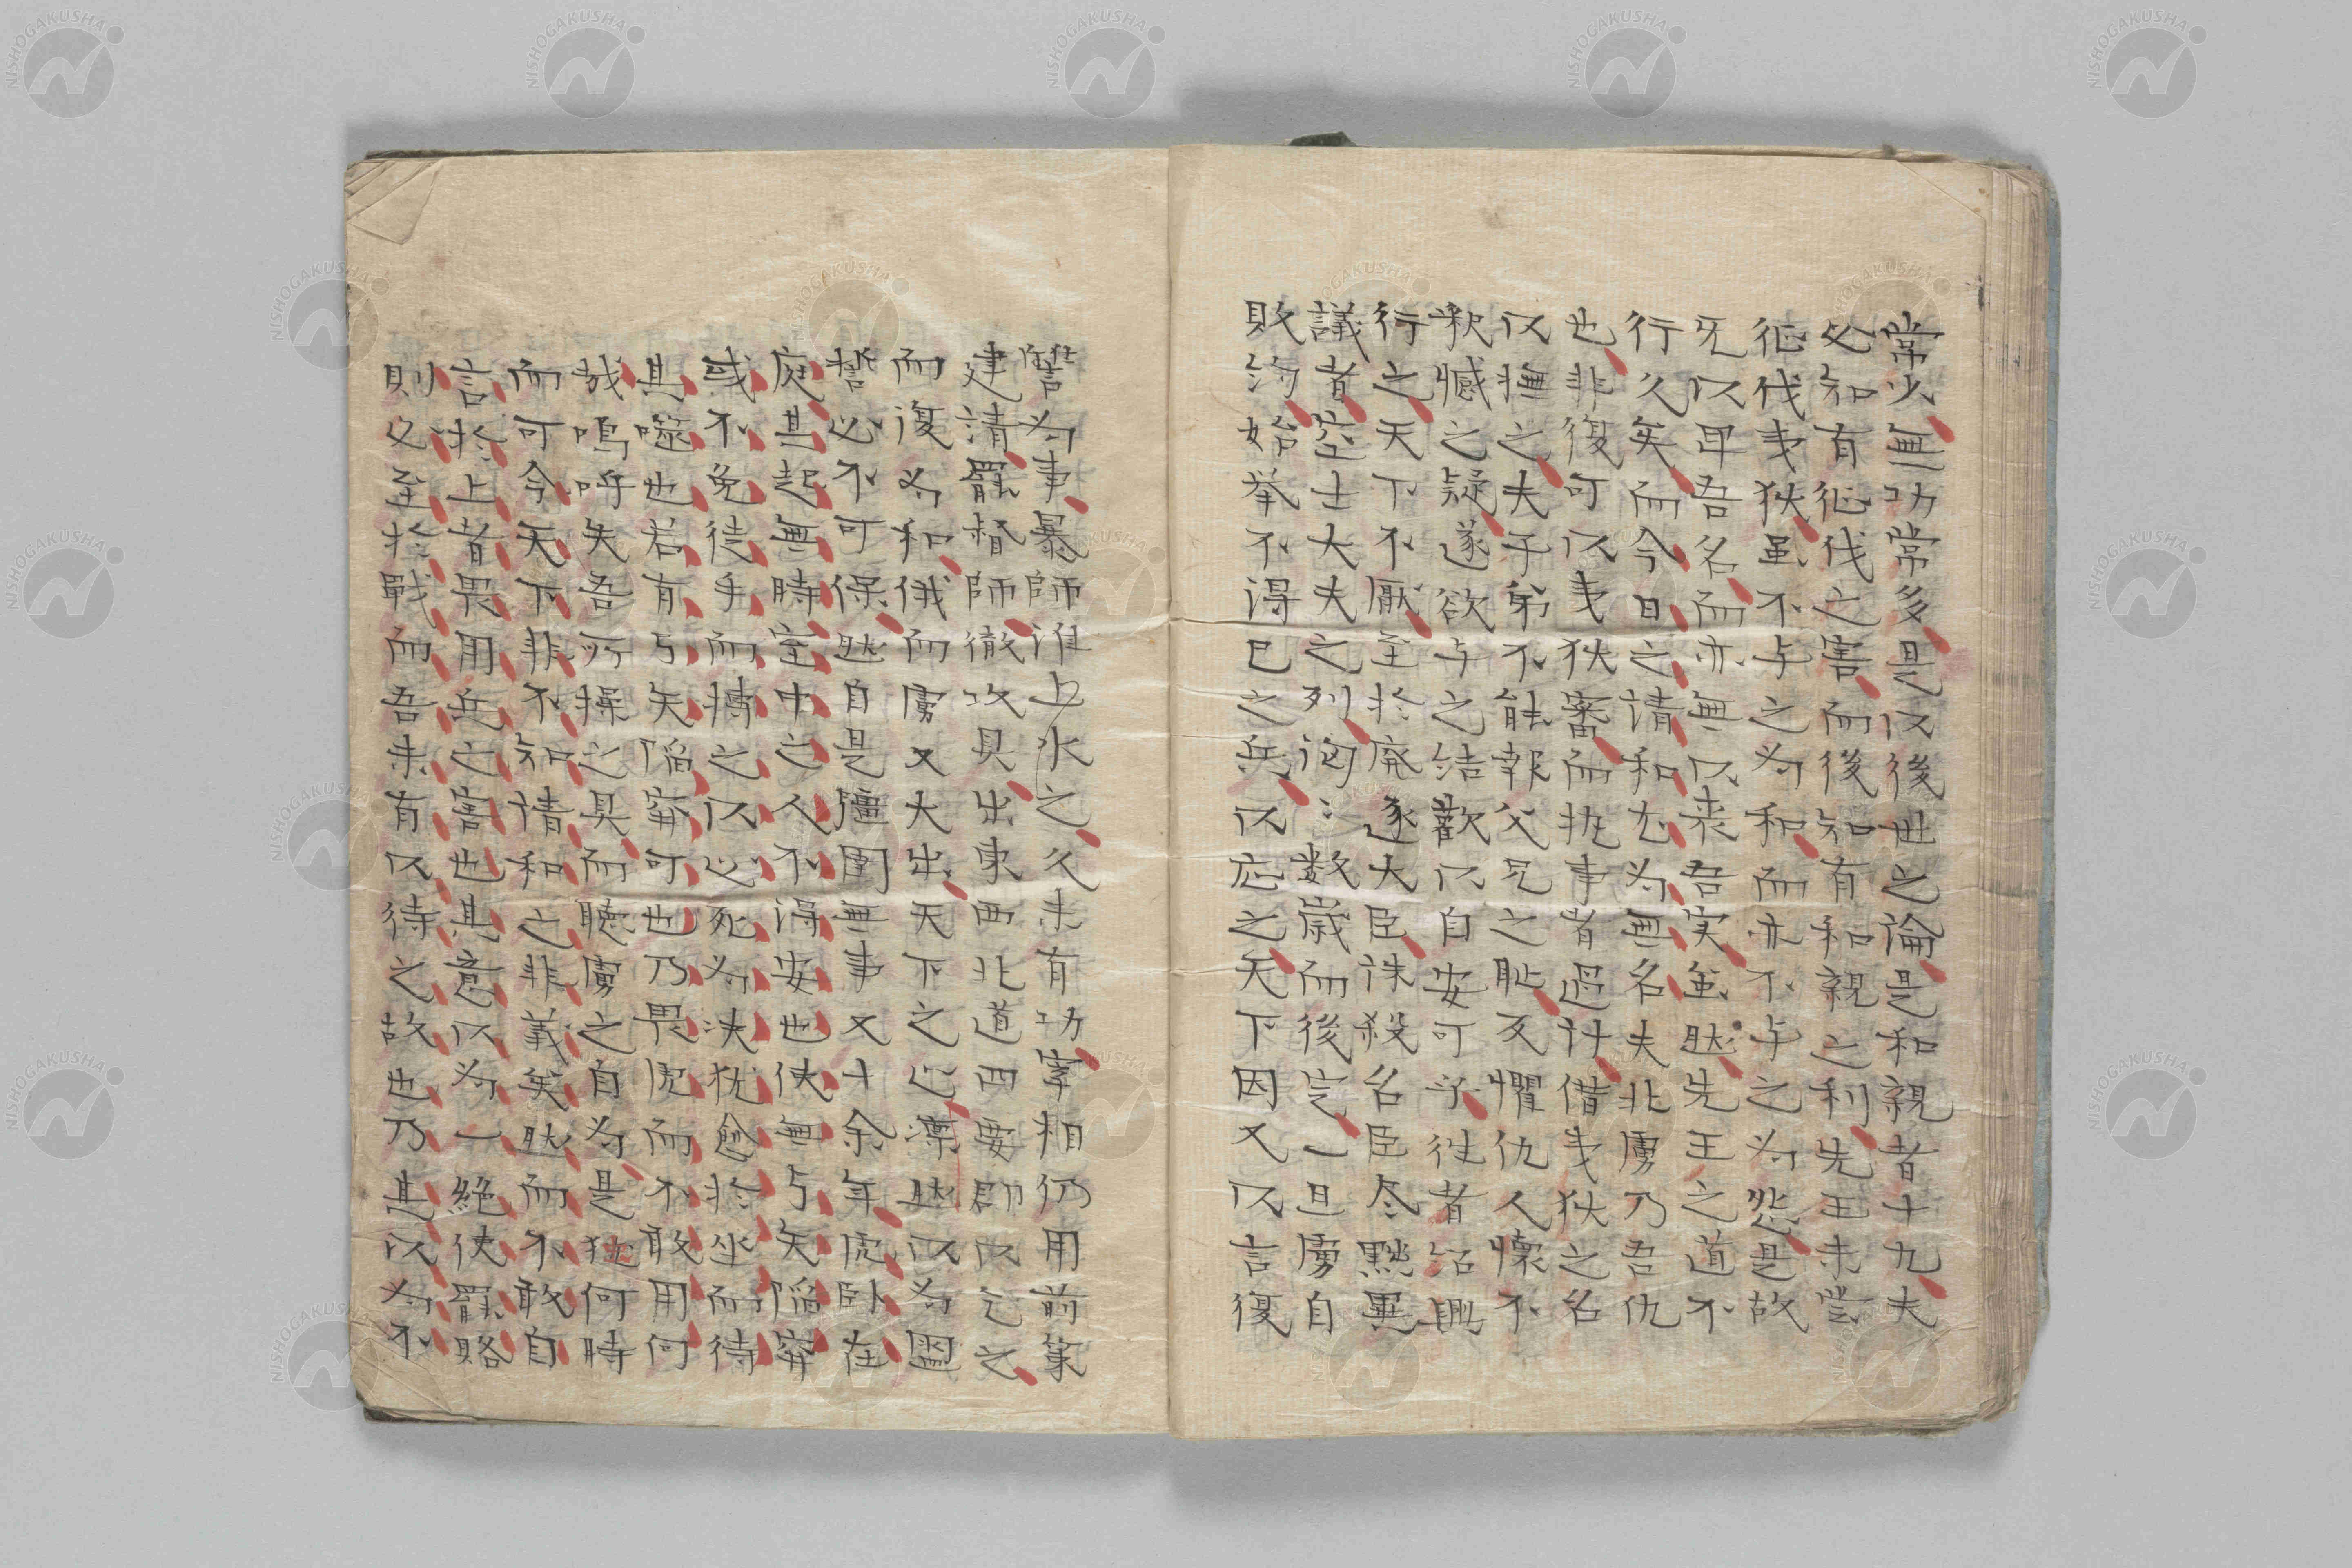 常少無功常多是以後世之論是和親者十九夫
必知有征伐之害而後知有和親之利先王未尝
征伐夷狄虽不与之为和而亦不与之为怨是故
无以卑吾名而亦無以来吾实虽然先王之道不
行久矣而今日之請和尤为無名夫北虜乃吾仇
也非復可以夷狄審而执事者過计借夷狄之名
以撫之夫子弟不能報父兄之耻反懼仇人懷不
釈憾之疑遂欲与之結歡以自安可乎往者紹興
行之天下不厭至於廃逐大臣诛殺名臣尽黜異
議者空士大夫之列洶々数歳而後定一旦虜自
敗約始挙不得已之兵以应之天下因又以言復
讐为事暴師淮上水之久未有功宰相仍用前策
建請罷督師徹攻具出東西北道四要郡以乞之
而復为和俄而虜又大出天下之心凛然以为盟
誓必不可保然自是彊圉無事又十余年虎卧在
庭其起無時室中之人不得安也使無弓矢陷穽
或不免徒手而搏之以必死为决犹愈於坐而待
其噬也若有弓矢陷穽可也乃畏虎而不敢用何
哉嗚呼失吾所操之具而聽虜之自为是独何時
而可今天下非不知请和之非義矣然而不敢自
言於上者畏用兵之害也其意以为一絶使罷賂
則必至於戰而吾未有以待之故也乃其以为不